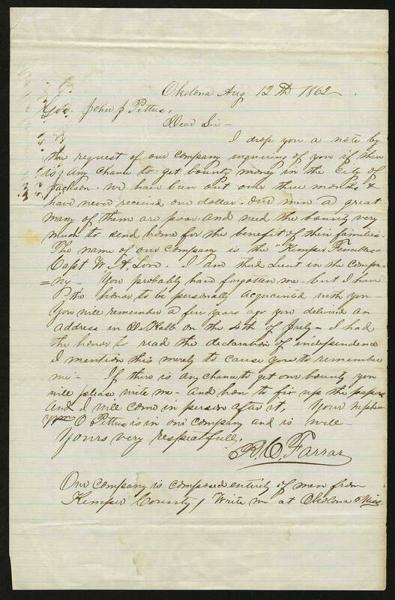 Okolona Aug 12th 1862
Gov. John J Pettus,
Dear Sir—
I drop you a note by
the request of our company enquiring of you if there
is any chance to get bounty money in the City of
Jackson. We have been out over three months &
have never received one dollar. Our men a great
many of them are poor and need the bounty very
much to send home for the benefit of their families.
The name of our company is the "Kemper
Capt W. H. Love. I am third Lieut in the compa-
=ny— You probably have forgotten me but I have
the honor to be personally acquainted with you—
You will remember a few years ago you delivered an
address in De Kalb on the 4th of July— I had
the honor to read the declaration of independence
I mention this merely to cause you to remember
me— If there is any chance to get our bounty you
will please write me— And how to fix up the papers
And I will come in person after it. Your nephew
O Pettus is in our company and is well
Yours very respectfully,
R. C. Farrar
Our company is composed entirely of men from
Kemper County / Write me at Okolona Miss.